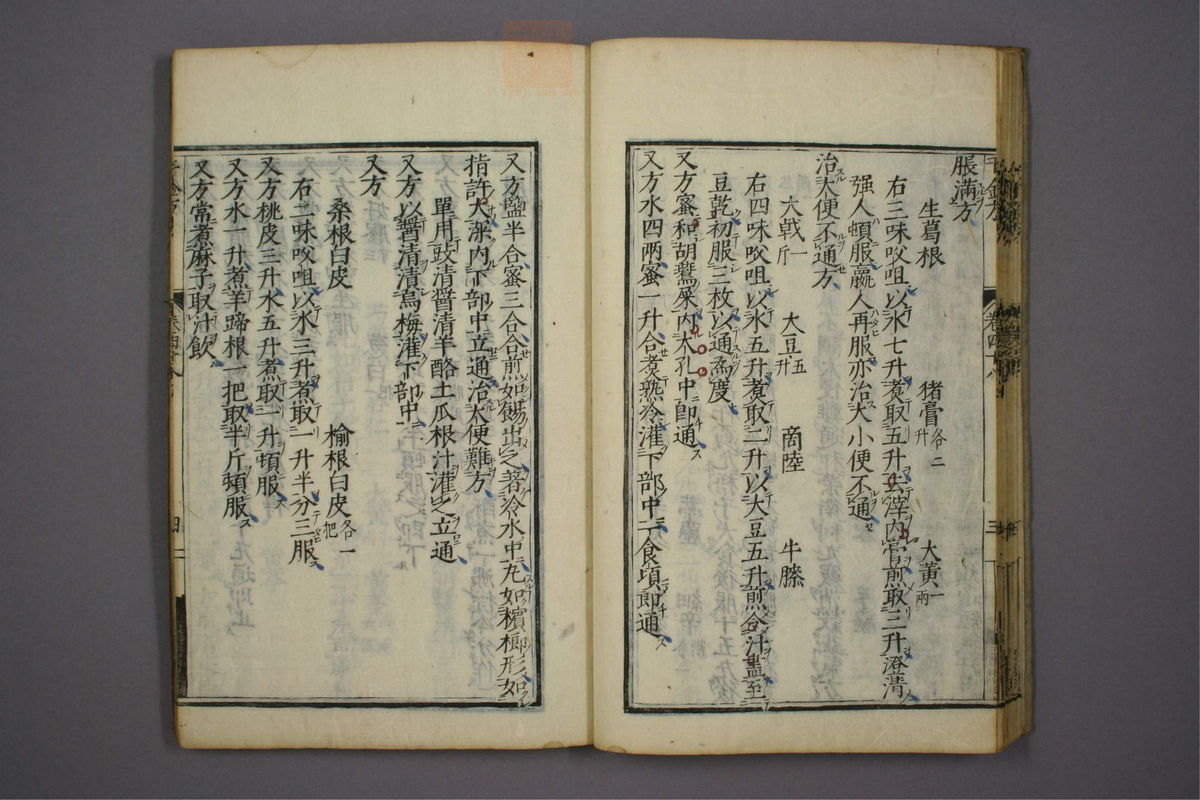 脹滿方
生葛根 猪膏各二升 大黃一兩
右三味㕮咀以水七升煮取五升去滓内膏煎取三升澄清
强人頓服羸人再服亦治大小便不通
治大便不通方
大戟一斤 大豆五升 商陸 牛膝
右四味㕮咀以水五升煮取二升以大豆五升煎令汁盡至
豆乾初服三枚以通爲度
又方蜜和胡鷰屎内大孔中即通
又方水四兩蜜一升合煮熟冷灌下部中一食頃即通
又方鹽半合蜜三合合煎如餳出之著冷水中丸如檳榔形如
指許大深内下部中立通治大便難方
單用豉清醬清羊酪土瓜根汁灌之立通
又方以醬清漬烏梅灌下部中
又方
桑根白皮 榆根白皮各一把
右二味㕮咀以水三升煮取一升半分三服
又方桃皮三升水五升煮取一升頓服
又方水一升煮羊蹄根一把取半斤頓服
又方常煮麻子取汁飲